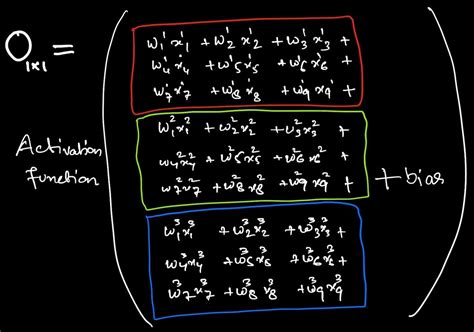 O₁ₓ₁ =
Activation
function
w₁¹x₁¹ + w₂¹x₂¹ + w₃¹x₃¹ +
w₄¹x₄¹ + w₅¹x₅¹ + w₆¹x₆¹ +
w₇¹x₇¹ + w₈¹x₈¹ + w₉¹x₉¹ +
w₁²x₁² + w₂²x₂² + w₃²x₃² +
w₄²x₄² + w₅²x₅² + w₆²x₆² +
w₇²x₇² + w₈²x₈² + w₉²x₉² +
w₁³x₁³ + w₂³x₂³ + w₃³x₃³ +
w₄³x₄³ + w₅³x₅³ + w₆³x₆³ +
w₇³x₇³ + w₈³x₈³ + w₉³x₉³
+ bias